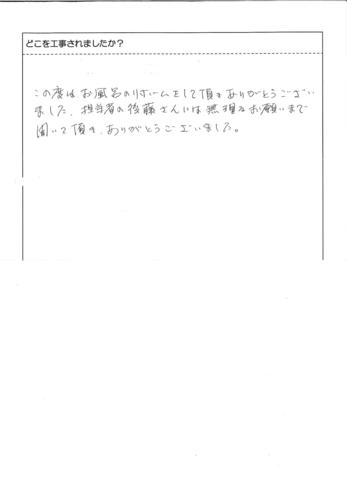 どこを工事されましたか？
この度はお風呂のリホームをして頂きありがとうござい
ました。担当者の後藤さんには無理なお願いまで
聞いて頂き、ありがとうございました。